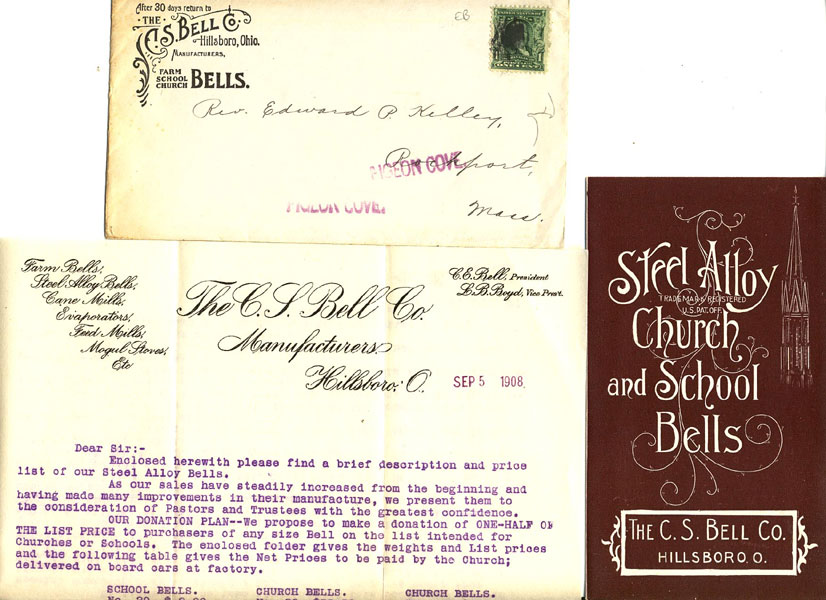 After 30 days return to
THE
C. S. BELL Co.
Hillsboro, Ohio.
MANUFACTURERS,
FARM
SCHOOL
CHURCH
BELLS.
EB
Rev. Edward P Kelley,
Rockport,
PIGEON COVE
PIGEON COVE.
Mass.
Farm Bells,
Steel Alloy Bells,
Cane Mills,
Evaporators,
Feed Mills,
Mogul Stoves,
Etc
C.E. Bell, President
L.B. Boyd, Vice Prest.
The C. S. Bell Co.
Manufacturers
Hillsboro, O.
SEP 5 1908
Dear Sir:-
Enclosed herewith please find a brief description and price
list of our Steel Alloy Bells.
As our sales have steadily increased from the beginning and
having made many improvements in their manufacture, we present them to
the consideration of Pastors and Trustees with the greatest confidence.
OUR DONATION PLAN--We propose to make a donation of ONE-HALF OF
THE LIST PRICE to purchasers of any size Bell on the list intended for
Churches or Schools. The enclosed folder gives the weights and List prices
and the following table gives the Net Prices to be paid by the Church;
delivered on board cars at factory.
SCHOOL BELLS. CHURCH BELLS. CHURCH BELLS.
Steel Alloy
TRADE MARK REGISTERED
U.S. PAT. OFF.
Church
and School
Bells
THE C. S. BELL CO.
HILLSBORO, O.